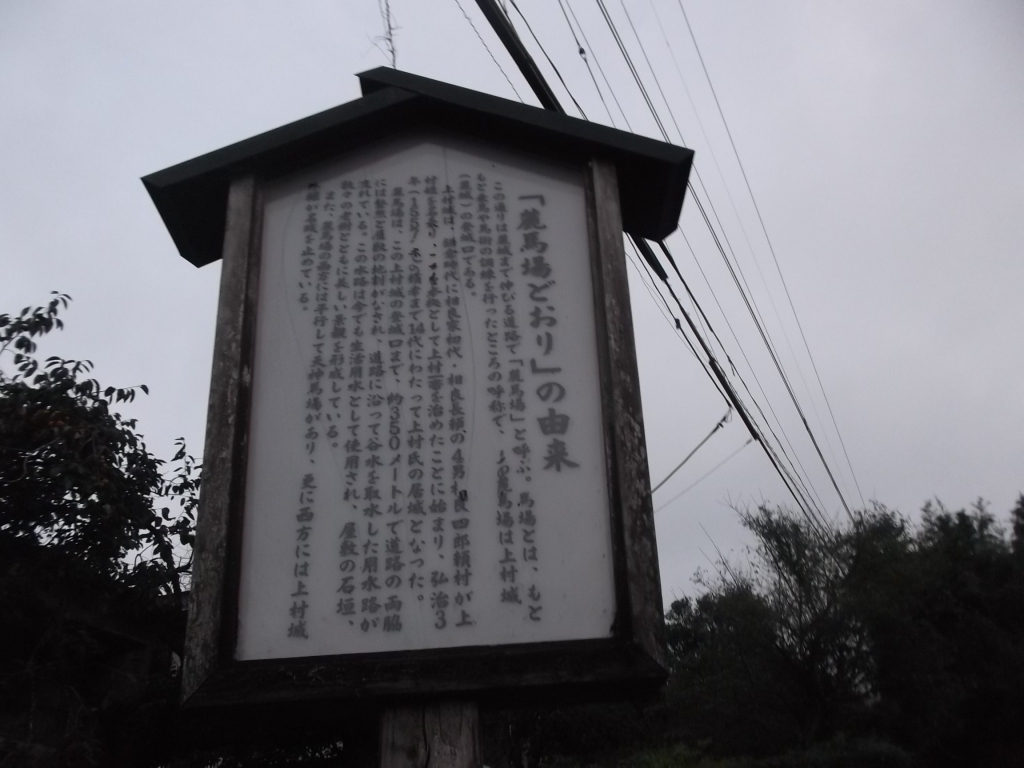 「麓馬場どおり」の由来
この通りは麓城まで伸びる道路で「麓馬場」と呼ぶ。馬場とは、もと
もと乗馬や馬術の訓練を行ったところの呼称で、この麓馬場は上村城
(麓城)の登城口である。
上村城は、鎌倉時代に相良家初代・相良長頼の4男相良四郎頼村が上
村姓を名乗り、ここを本拠として上村一帯を治めたことに始まり、弘治3
年(1557年)の頼孝まで14代にわたって上村氏の居城となった。
麓馬場は、この上村城の登城口まで、約350メートルで道路の両脇
には整然と屋敷の地割がなされ、道路に沿って谷水を取水した用水路が
流れている。この水路は今でも生活用水として使用され、屋敷の石垣、
数々の老樹とともに美しい景観を形成している。
また、麓馬場の西には平行して天神馬場があり、更に西方には上村城
が名残を止めている。